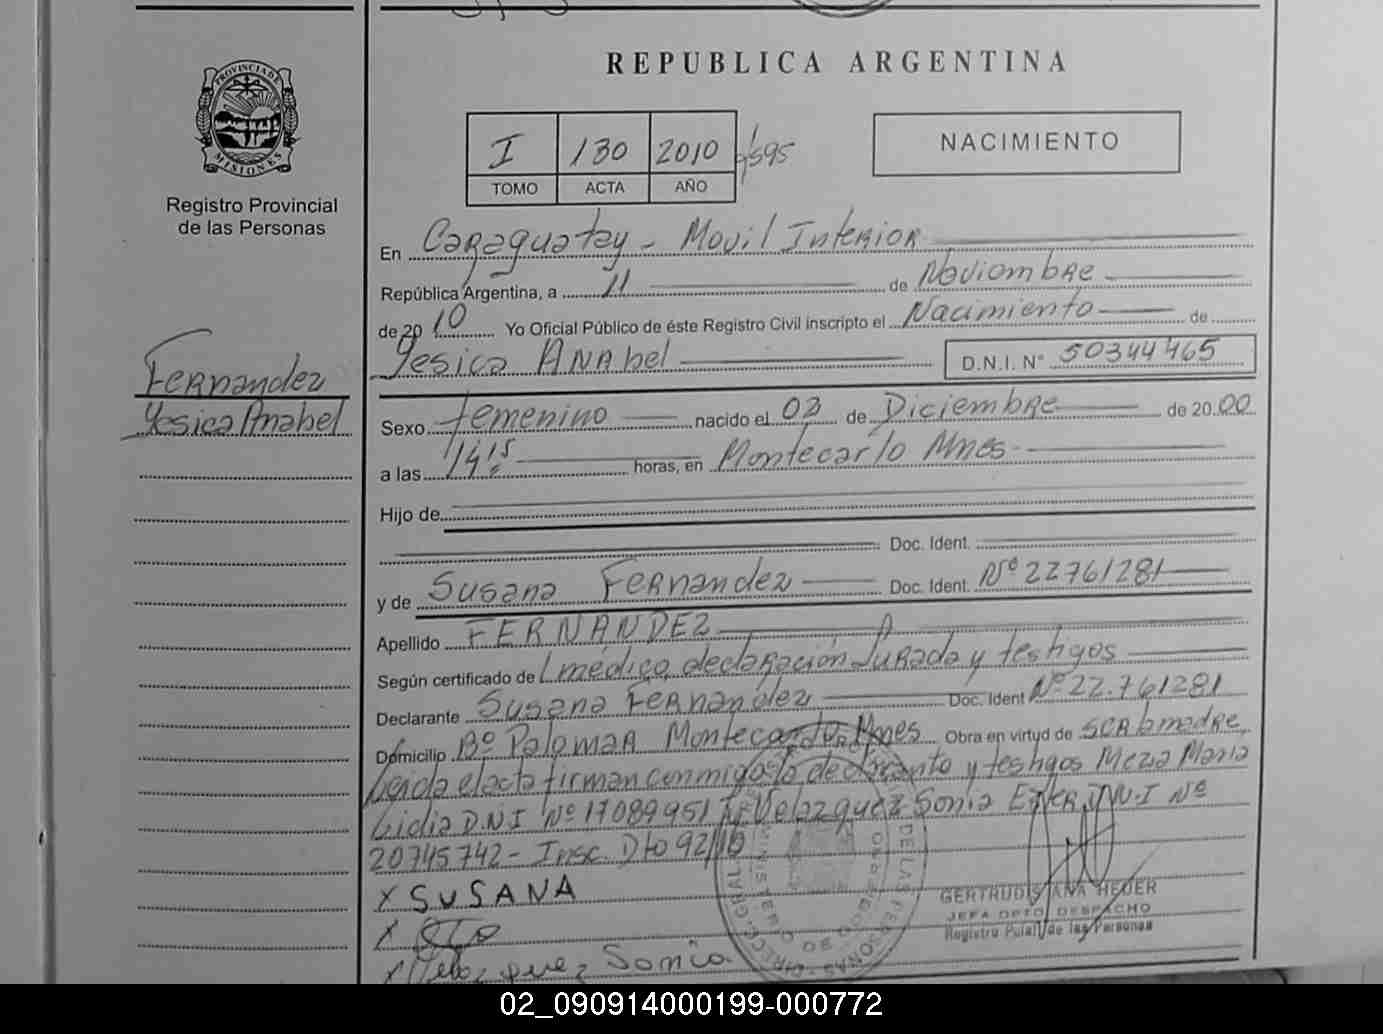 REPUBLICA ARGENTINA
PROVINCIA DE
MISIONES
Registro Provincial
de las Personas
I 130 2010 /595
TOMO ACTA AÑO
NACIMIENTO
En Caraguatay - Movil Interior
República Argentina, a 11 de Noviembre
de 20 10 Yo Oficial Público de éste Registro Civil inscripto el Nacimiento de
Yesica Anabel D.N.I. N° 50344465
Fernandez
Yesica Anabel
Sexo femenino nacido el 03 de Diciembre de 20.00
a las 14:15 horas, en Montecarlo Mnes
Hijo de
Doc. Ident.
y de Susana Fernandez Doc. Ident. Nº 22761281
Apellido FERNANDEZ
Según certificado de médico, declaración Jurada y testigos
Declarante Susana Fernandez Doc. Ident Nº 22.761281
Domicilio Bº Palomar Montecarlo Mnes Obra en virtud de ser la madre
Leida el acta firman conmigo la declarante y testigos Meza Maria
Lidia D.N.I Nº 17089951 Velazquez Sonia Ester D.N.I Nº
20745742 - Insc. Dto 92/10
X SUSANA
X
X Velazquez Sonia
GERTRUDIS ANA HEDER
JEFA DPTO DESPACHO
Registro Pcial. de las Personas
02_090914000199-000772